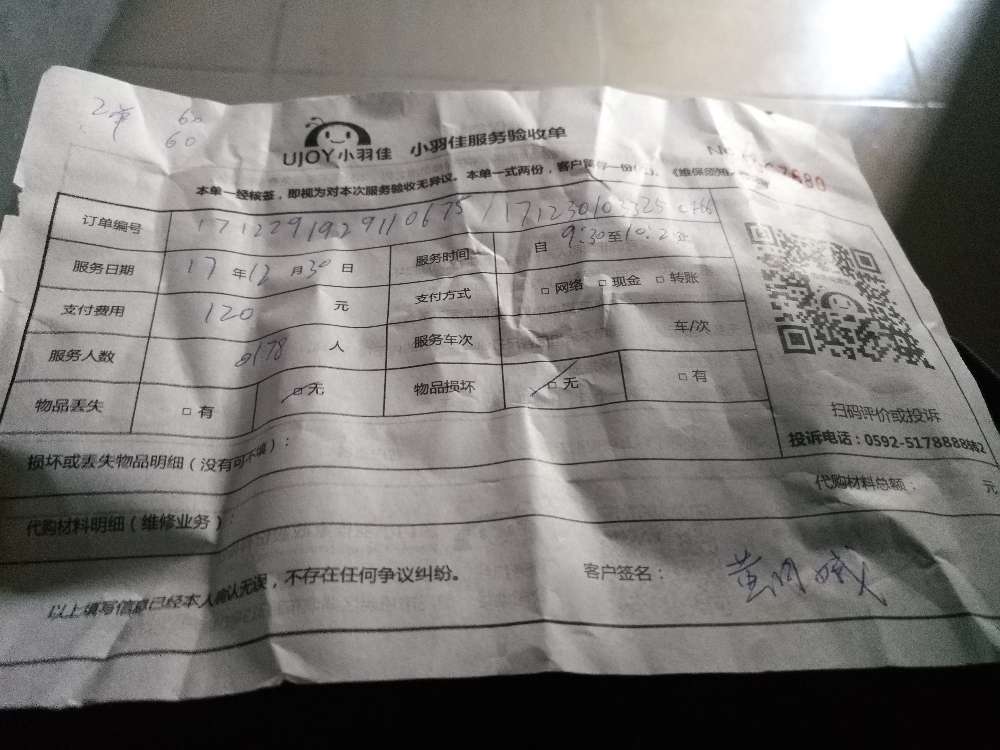 2单 60
60
UJOY小羽佳 小羽佳服务验收单
本单一经核签,即视为对本次服务验收无异议。本单一式两份,客户
订单编号 171229192911 0675 / 171230103325
服务日期 17 年 12 月 30 日 服务时间 自 9:30 至
支付费用 120 元 支付方式 □ 网络 □ 现金 □ 转账
服务人数 人 服务车次 车/次
物品丢失 □ 有 □ 无 物品损坏 □ 无 □ 有
扫码评价或投诉
投诉电话:0592-5178888转2
损坏或丢失物品明细(没有可不填):
代购材料总额: 元
代购材料明细(维修业务):
以上填写信息已经本人确认无误,不存在任何争议纠纷。 客户签名: